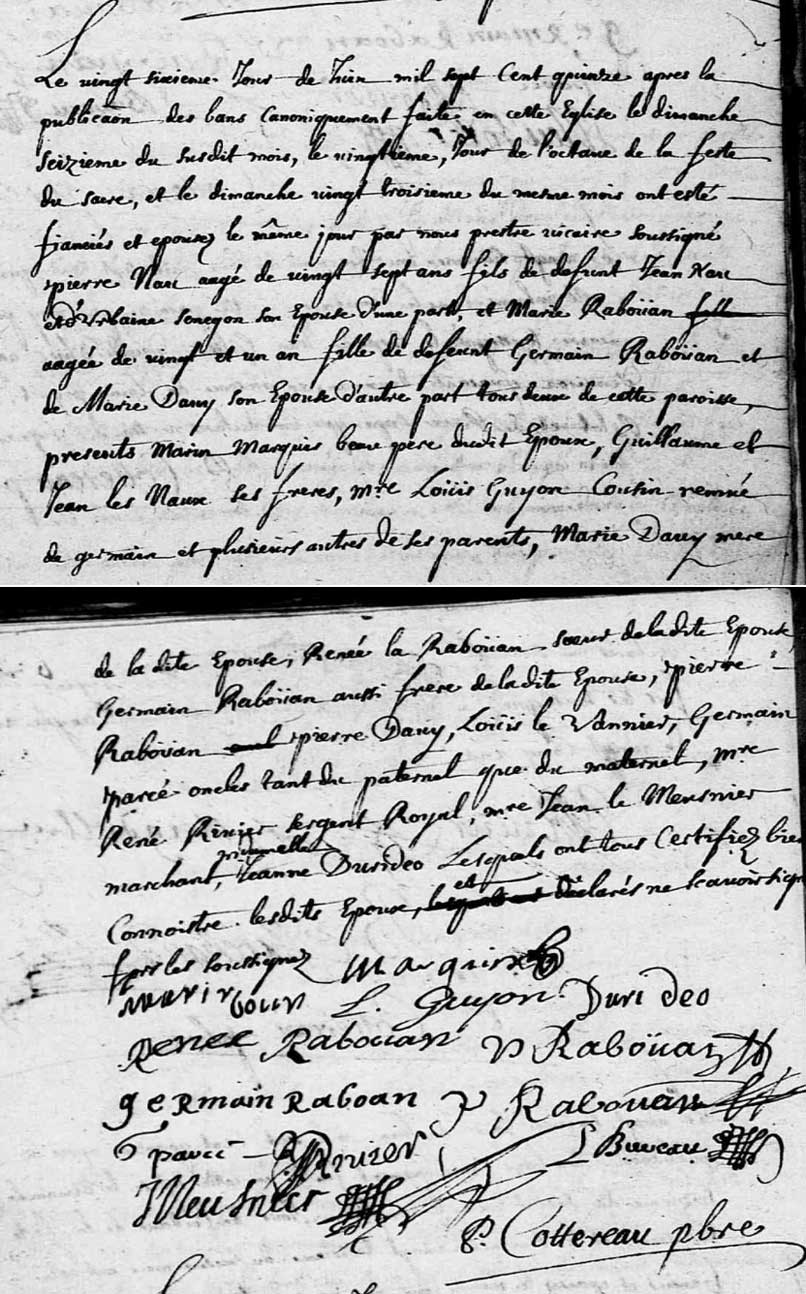 Le vingt sixieme Jour de Juin mil sept Cent quinze apres la
publicaõn des bans Canoniquement faite en cette Eglise le dimanche
seizieme du susdit mois, le vingtieme, Jour de l'octave de la feste
du sacre, et le dimanche vingt troisieme du mesme mois ont esté
fianciés et epousez le même jour par nous prestre vicaire soussigné
pierre Nau aagé de vingt sept ans fils de defunt Jean Nau
et d'Urbaine senegon son Epouse d'une part, et Marie Raboüan fille
aagée de vingt et un an fille de defunt Germain Raboüan et
de Marie Davy son Epouse d'autre part tous deux de cette paroisse,
presents Marin Marquis beau pere dudit Epoux, Guillaume et
Jean les Naux ses freres, mre Loüis Guyon Cousin remué
de germain et plusieurs autres de ses parents, Marie Davy mere
de la dite Epouse, Renée la Raboüan sœur de la dite Epouse,
Germain Raboüan aussi frere de la dite Epouse, pierre
Raboüan pierre Davy, Loüis le Vannier, Germain
parcé oncles tant du paternel que du maternel, mre
René Rivier sergent Royal, mre Jean le Meusnier
marchant, Jeanne Durideo Lesquels ont tous Certifiez bien
Connoistre lesdits Epoux, et déclarés ne scavoir sign
fors les soussignez Marquis
L. Guyon Duri deo
Renee Rabouan Raboüan
germain Raboan P Rabouan
G parcé Rivier L Buveau
J Meusnier
P. Cottereau pbre